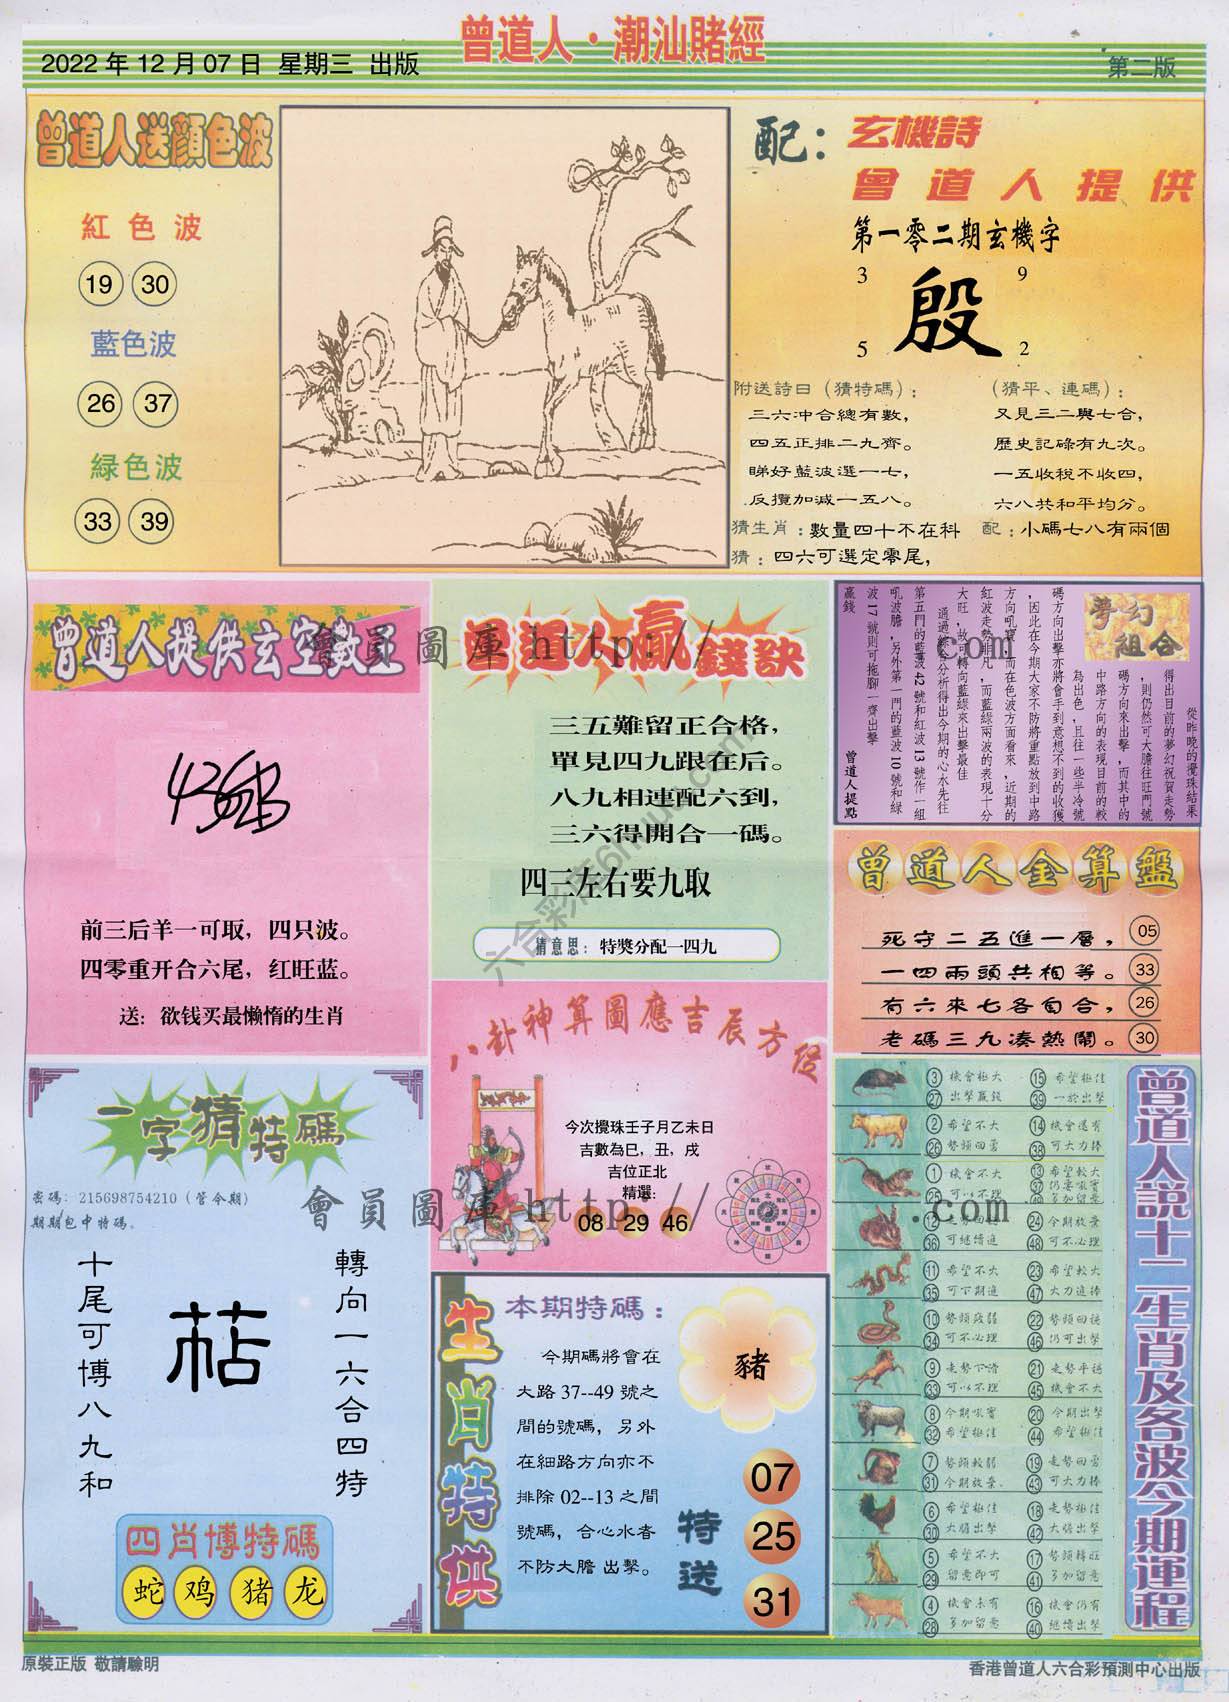 曾道人·潮汕賭經
2022 年 12 月 07 日 星期三 出版
第二版
曾道人送顏色波
紅色波
19 30
藍色波
26 37
緑色波
33 39
配：玄機詩
曾道人提供
第一零二期玄機字
3 9
殷
5 2
附送詩曰（猜特碼）：
三六冲合總有數，
四五正排二九齊。
睇好藍波選一七，
反攬加減一五八。
（猜平、連碼）：
又見三二與七合，
歷史記碌有九次。
一五收稅不收四，
六八共和平均分。
猜生肖：數量四十不在科
配：小碼七八有兩個
猜：四六可選定零尾，
曾道人提供玄空數王
前三后羊一可取，四只波。
四零重开合六尾，红旺蓝。
送：欲钱买最懒惰的生肖
曾道人贏錢訣
三五難留正合格，
單見四九跟在后。
八九相連配六到，
三六得開合一碼。
四三左右要九取
猜意思：特獎分配一四九
夢幻組合
從昨晚的攪珠結果
得出目前的夢幻祝賀走勢
，則仍然可大膽往旺門號
碼方向來出擊，而其中的
中路方向的表現目前的較
為出色，且往一些半冷號
碼方向出擊亦將會手到意想不到的收獲
，因此在今期大家不防將重點放到中路
方向吼寶，而在色波方面看來，近期的
紅波走勢非凡，而藍綠兩波的表現十分
大旺，故可轉向藍綠來出擊最佳
通過綜合分析得出今期的心水先往
第五門的藍波 42 號和紅波 13 號作一組
吼波膽，另外第一門的藍波 10 號和綠
波 17 號則可拖腳一齊出擊
贏錢
曾道人提點
曾道人金算盤
死守二五進一層， 05
一四兩頭共相等。 33
有六來七各自合， 26
老碼三九凑熱鬧。 30
八卦神算圖應吉辰方位
今次攪珠壬子月乙未日
吉數為巳，丑，戌
吉位正北
精選：
08 29 46
一字猜特碼
密碼：215698754210（管今期）
期期包中特碼。
轉向一六合四特
萜
十尾可博八九和
四肖博特碼
蛇 鸡 猪 龙
生肖特供
本期特碼：
今期碼將會在
大路 37--49 號之
間的號碼，另外
在細路方向亦不
排除 02--13 之間
號碼，合心水者
不防大膽 出擊。
豬
特送
07
25
31
曾道人説十二生肖及各波今期運程
③ 機會極大 ⑮ 希望極佳
㉗ 出擊贏錢 ㊴ 一於出擊
② 希望不大 ⑭ 機會還有
㉖ 勢頭回勇 ㊳ 可大力捧
① 機會不大 ⑬ 希望較大
㉕ 可以不理 ㊲ 仍要吼實
多加留意
⑫ 走勢回 ㉔ 今期放棄
㊱ 可繼續進 ㊽ 可不必理
⑪ 希望不大 ㉓ 希望較大
㉟ 可下期進 ㊼ 大力進捧
⑩ 勢頭段弱 ㉒ 勢頭回穩
㉞ 可不必理 ㊻ 仍可出擊
⑨ 走勢下滑 ㉑ 走勢平穩
㉝ 可以不理 ㊺ 機會不大
⑧ 今期吼實 ⑳ 今期出擊
㉜ 希望極佳 ㊹ 希望極佳
⑦ 勢頭較弱 ⑲ 走勢回勇
㉛ 今期放棄、 ㊸ 可大力捧
⑥ 希望極佳 ⑱ 走勢極佳
㉚ 大膽出擊 ㊷ 大膽出擊
⑤ 希望不大 ⑰ 勢頭轉旺
㉙ 留意即可 ㊶ 多加留意
④ 機會未有 ⑯ 機會仍有
㉘ 多加留意 ㊵ 繼續出擊
會員圖庫 http:// .com
會員圖庫 http:// .com
原裝正版 敬請驗明
香港曾道人六合彩預測中心出版